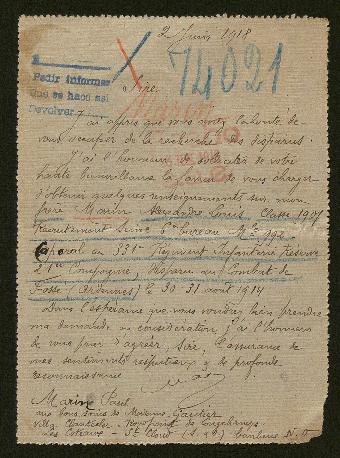 2 Juin 1918
Pedir informes
que se hace así
Devolver
74021
Sire,
J'ai appris que vous avez la bonté de
vous occuper de la recherche des disparus
J'ai l'honneur de solliciter de votre
haute bienveillance la faveur de vous charger
d'obtenir quelques renseignements sur mon
frère Marin Alexandre Louis, Classe 1907
Recrutement Seine 6e bureau Mle 992
Caporal au 331e Régiment Infanterie Réserve
21e Compagnie, Disparu au Combat de
Fossé (Ardennes) le 30 31 août 1914
Dans l'espérance que vous voudrez bien prendre
ma demande en considération, j'ai l'honneur
de vous prier d'agréer Sire, l'assurance de
mes sentiments respectueux & de profonde
reconnaissance
Marin Paul
aux bons soins de Madame Gautier
Villa
Les Coteaux - St Cloud (S. & O)